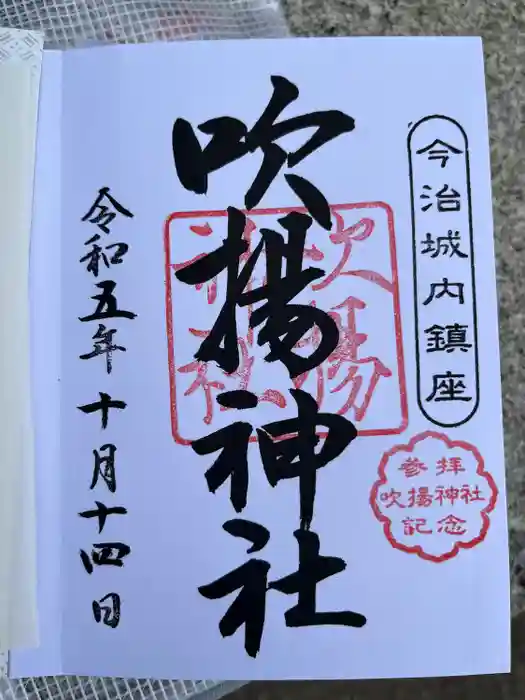 今治城内鎮座
吹揚神社
吹揚
神社
参拝
吹揚神社
記念
令和五年十月十四日